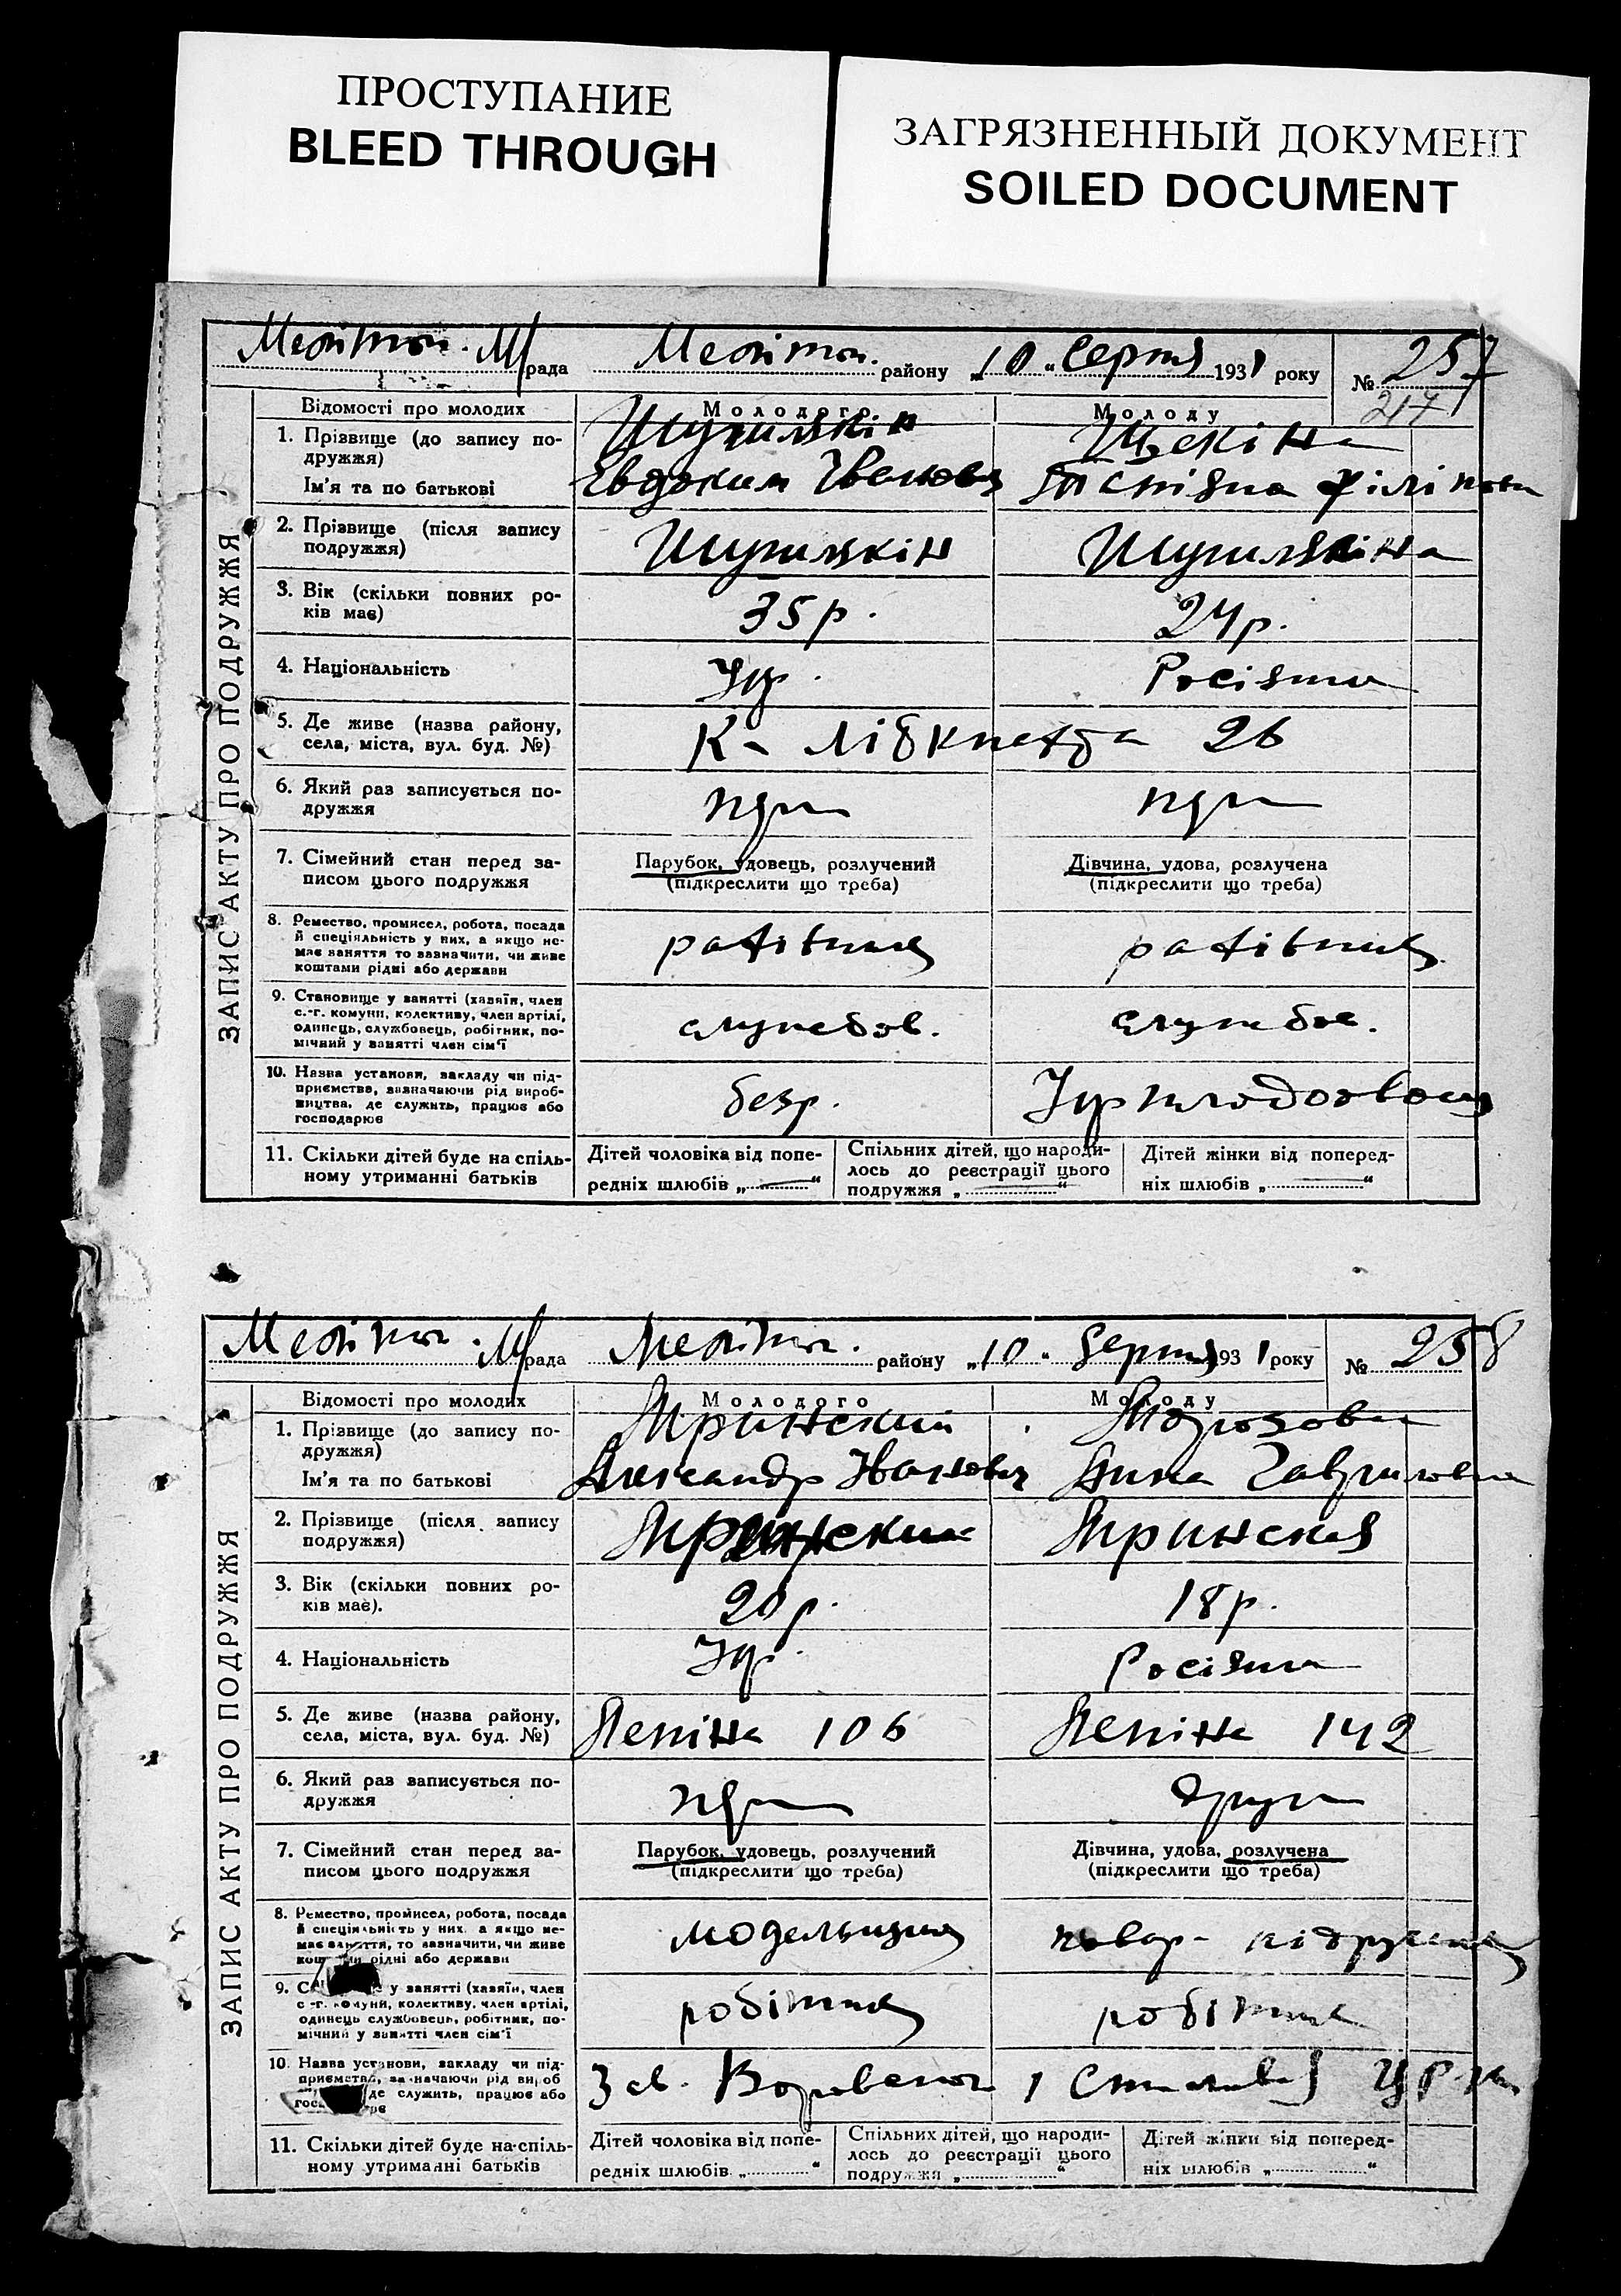 ПРОСТУПАНИЕ
BLEED THROUGH
ЗАГРЯЗНЕННЫЙ ДОКУМЕНТ
SOILED DOCUMENT
ЗАПИС АКТУ ПРО ПОДРУЖЖЯ
рада району „10“ Серпня 1931 року № 257
217
Відомості про молодих Молодого Молоду
1. Прізвище (до запису по-
дружжя) Щекіна
Ім'я та по батькові Евдоким
2. Прізвище (після запису
подружжя)
3. Вік (скільки повних ро-
ків має) 35 р. 24 р.
4. Національність Укр. Росіянка
5. Де живе (назва району,
села, міста, вул. буд. №) К- Лібкнехта 26
6. Який раз записується по-
дружжя
7. Сімейний стан перед за-
писом цього подружжя
Парубок, удовець, розлучений
(підкреслити що треба)
Дівчина, удова, розлучена
(підкреслити що треба)
8. Ремество, промисел, робота, посада
й спеціяльність у них, а якщо не-
має заняття то зазначити, чи живе
коштами рідні або держави
9. Становище у занятті (хазяїн, член
с.-г. комуни, колективу, член артілі,
одинець, службовець, робітник, по-
мічний у занятті член сім'ї
службов. службов.
10. Назва установи, закладу чи під-
приємства, зазначаючи рід вироб-
ництва, де служить, працює або
господарює
безр.
11. Скільки дітей буде на спіль-
ному утриманні батьків
Дітей чоловіка від попе-
редніх шлюбів „ “
Спільних дітей, що народи-
лось до реєстрації цього
подружжя „ “
Дітей жінки від поперед-
ніх шлюбів „ “
ЗАПИС АКТУ ПРО ПОДРУЖЖЯ
рада району „10“ Серпня 1931 року № 258
Відомості про молодих Молодого Молоду
1. Прізвище (до запису по-
дружжя)
Ім'я та по батькові Александр Іванович Гавриловна
2. Прізвище (після запису
подружжя)
3. Вік (скільки повних ро-
ків має). 20 р. 18 р.
4. Національність Укр. Росіянка
5. Де живе (назва району,
села, міста, вул. буд. №) Леніна 106 Леніна 142
6. Який раз записується по-
дружжя
7. Сімейний стан перед за-
писом цього подружжя
Парубок, удовець, розлучений
(підкреслити що треба)
Дівчина, удова, розлучена
(підкреслити що треба)
8. Ремество, промисел, робота, посада
й спеціяльність у них, а якщо не-
має заняття, то зазначити, чи живе
рідні або держави
модельщик повар-
9. у занятті (хазяїн, член
с.-г. комуни, колективу, член артілі,
одинець службовець, робітник, по-
мічний у занятті член сім'ї
робітник
10. Назва установи, закладу чи під-
приємства, зазначаючи рід вироб
де служить, працює або
11. Скільки дітей буде на спіль-
ному утриманні батьків
Дітей чоловіка від попе-
редніх шлюбів „ “
Спільних дітей, що народи-
лось до реєстрації цього
подружжя „ “
Дітей жінки від поперед-
ніх шлюбів „ “